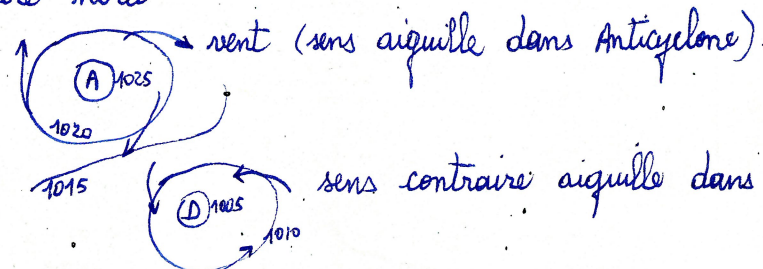 vent (sens aiguille dans Anticyclone)
A 1025
1020
1015
sens contraire aiguille dans
D 1005
1010